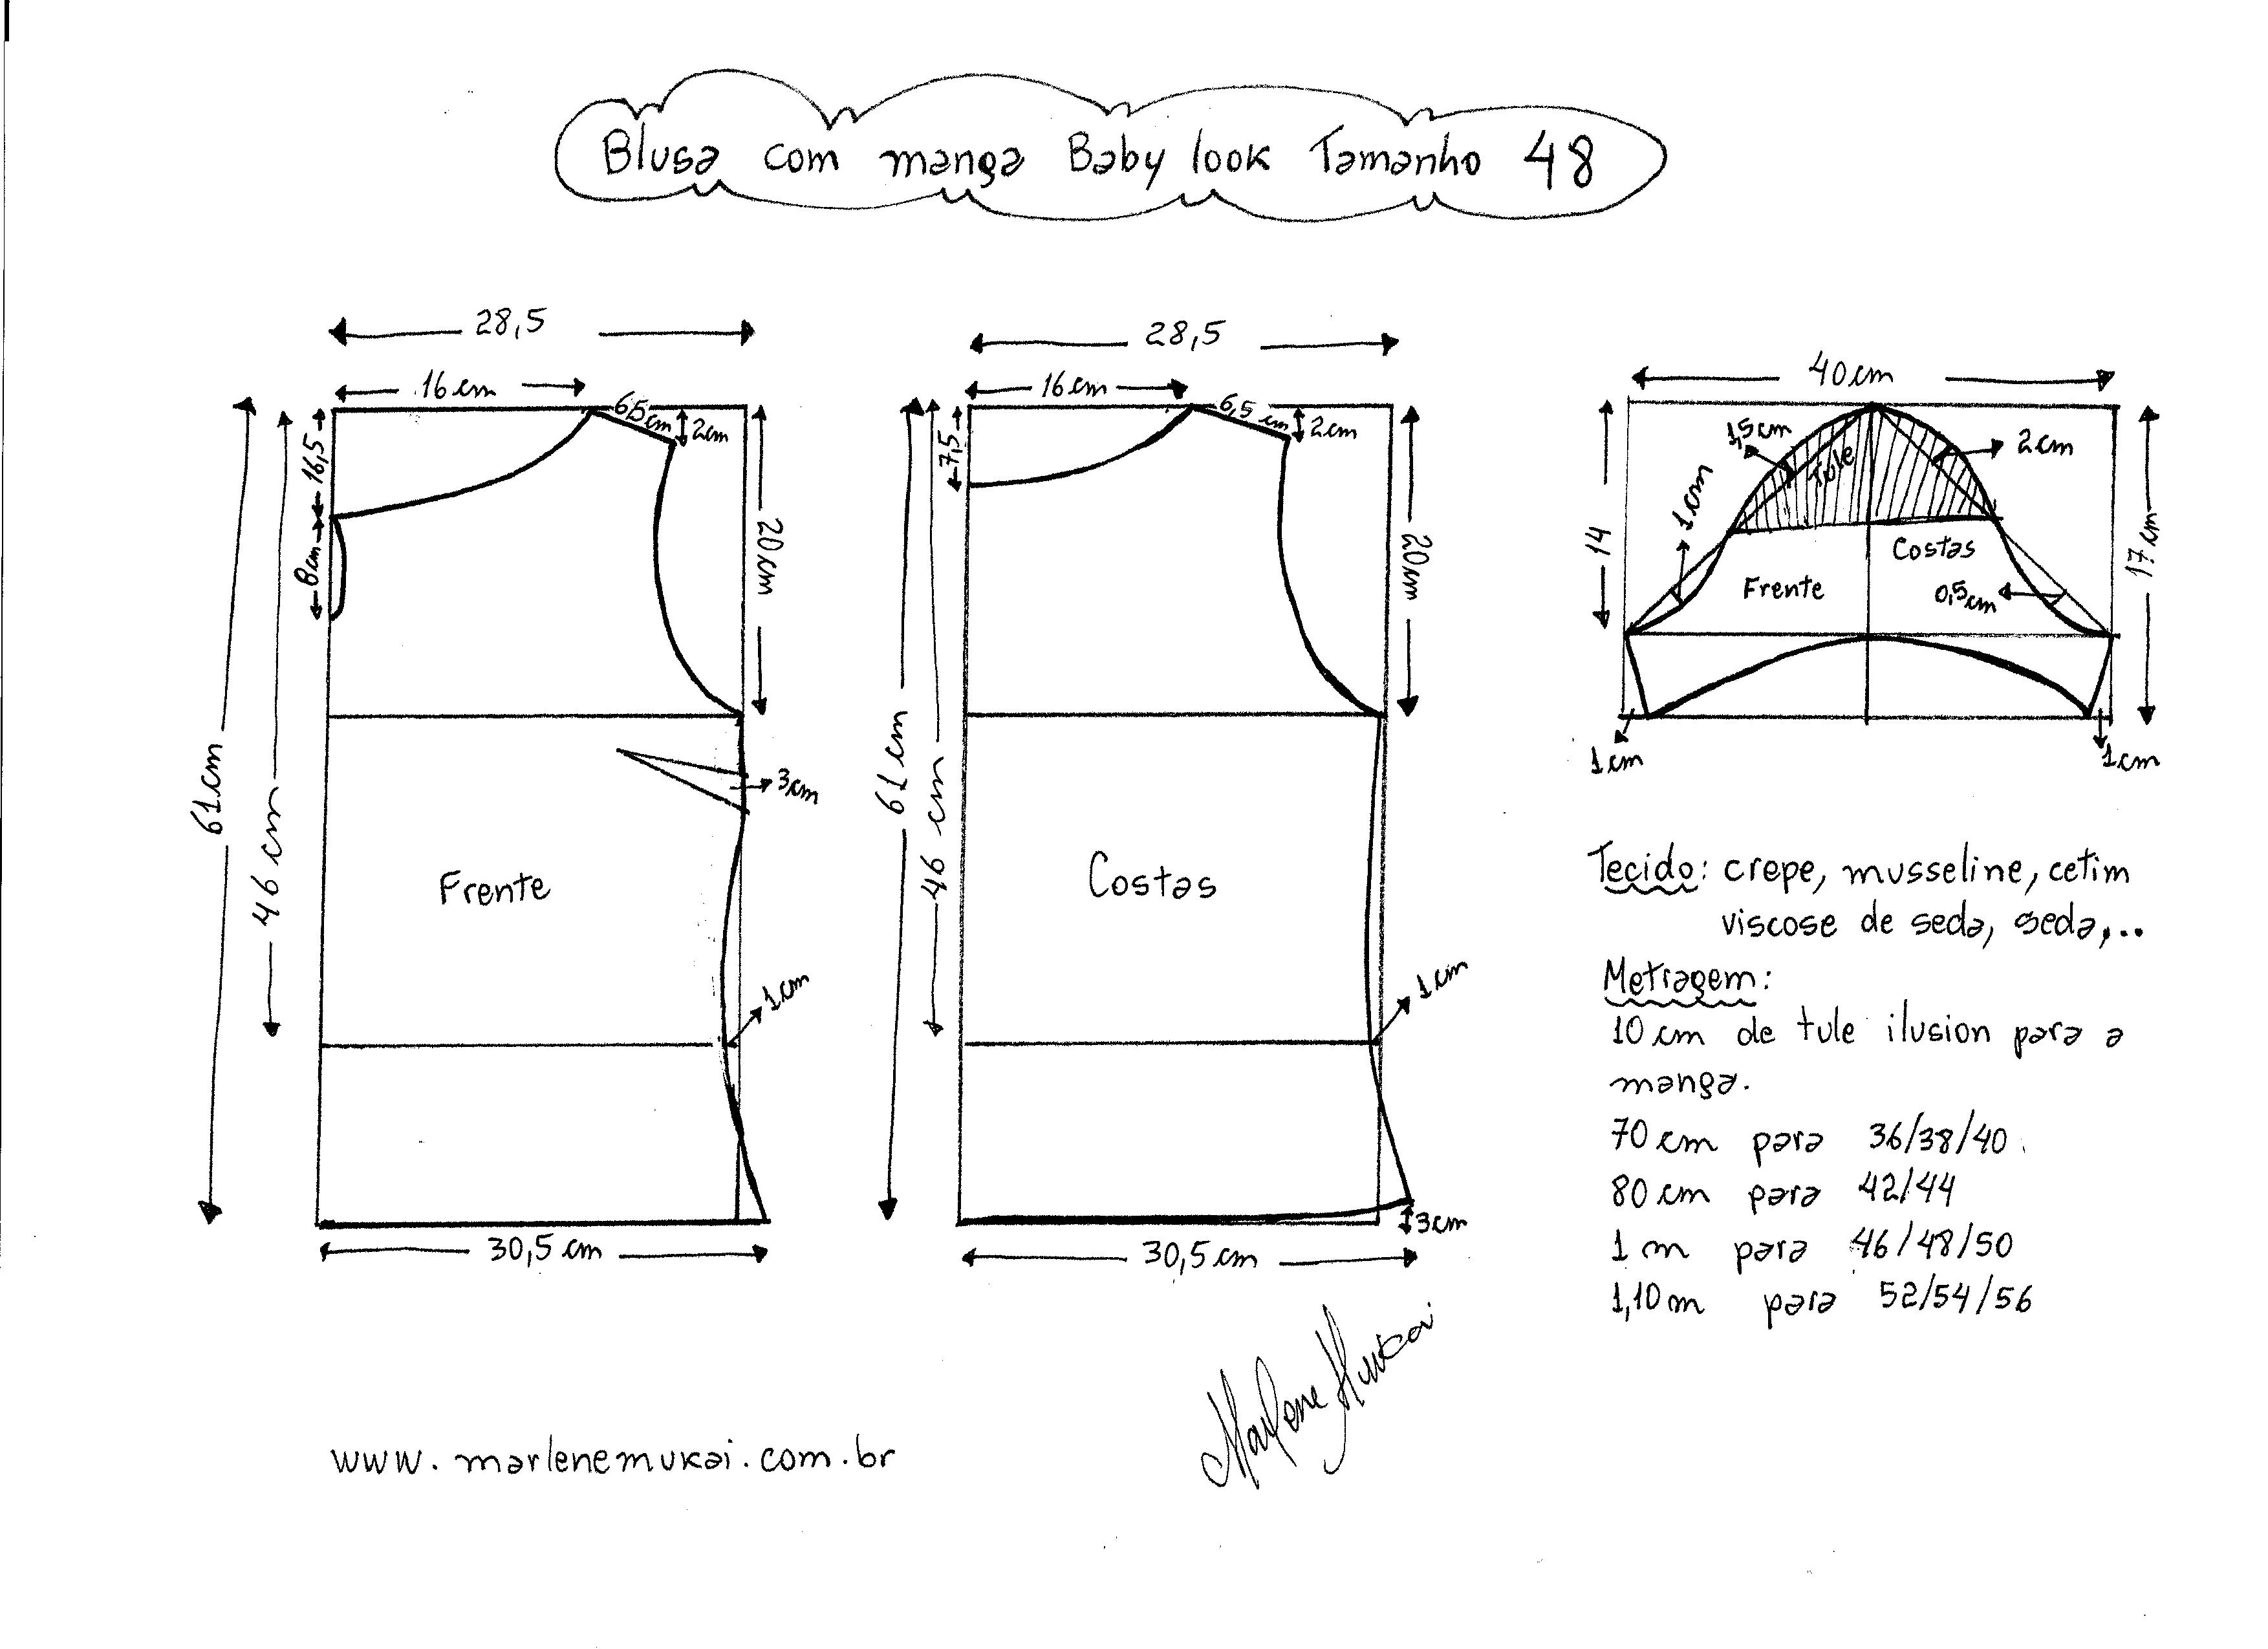 Blusa com manga Baby look Tamanho 48
28,5
16 cm
6,5 cm
2cm
16,5
8cm
20cm
61cm
46 cm
3cm
Frente
1cm
30,5 cm
28,5
16 cm
6,5 cm
2cm
7,5
20cm
61 cm
46 cm
Costas
1cm
3cm
30,5 cm
40cm
1,5cm
Tule
2cm
1cm
14
17 cm
Costas
Frente
0,5cm
1cm
1cm
Tecido: crepe, musseline, cetim
viscose de seda, seda,...
Metragem:
10 cm de tule ilusion para a
manga.
70 cm para 36/38/40.
80 cm para 42/44
1 m para 46/48/50
1,10 m para 52/54/56
Marlene Mukai
www.marlenemukai.com.br